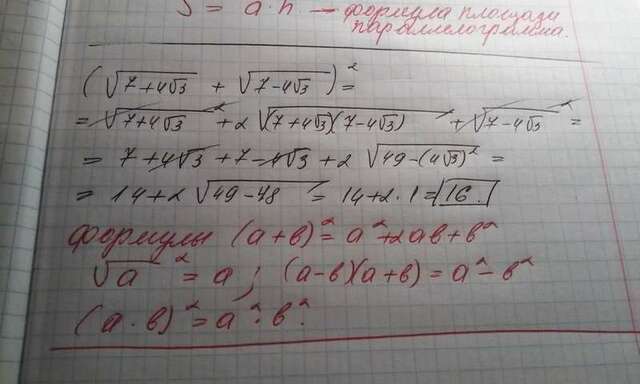 S = a·h — формула площади
параллелограмма.
(√7+4√3 + √7-4√3)² =
= √7+4√3² + 2√(7+4√3)(7-4√3) + √7-4√3² =
= 7+4√3+7-4√3+2 √49-(4√3)² =
= 14+2√49-48 = 14+2·1=16.
формулы (a+b)² = a²+2ab+b²
√a² = a; (a-b)(a+b) = a²-b²
(a·b)² = a²·b².